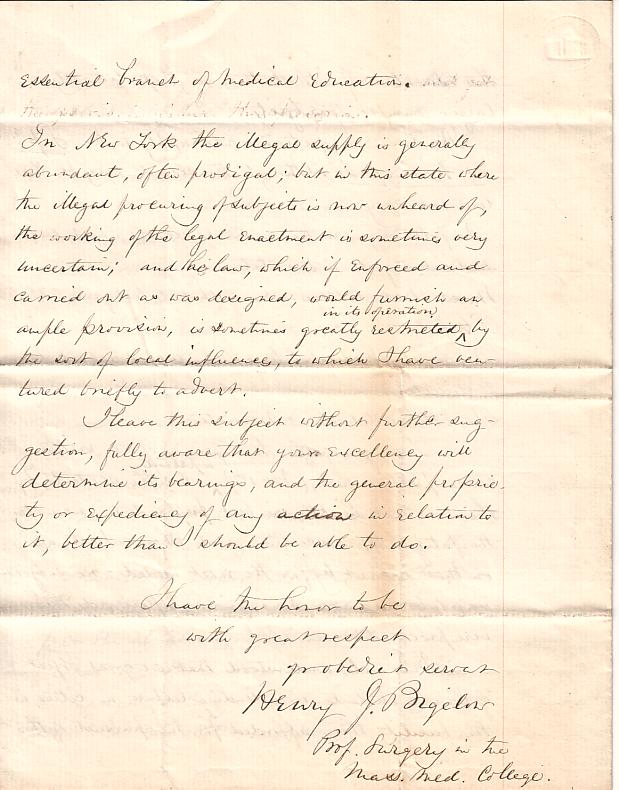 Essential branch of Medical Education.
In New York the illegal supply is generally
abundant, often prodigal; but in this state where
the illegal procuring of subjects is now unheard of,
the working of the legal enactment is sometimes very
uncertain; and the law, which if enforced and
carried out as was designed, would furnish an
in its operation
ample provision, is sometimes greatly restricted ^ by
the sort of local influence, to which I have ven-
tured briefly to advert.
I leave this subject without further sug-
gestion, fully aware that your Excellency will
determine its bearings, and the general proprie-
ty or expediency of any action in relation to
it, better than I should be able to do.
I have the honor to be
with great respect
yr obedient servant
Henry J. Bigelow
Prof. Surgery in the
Mass. Med. College.